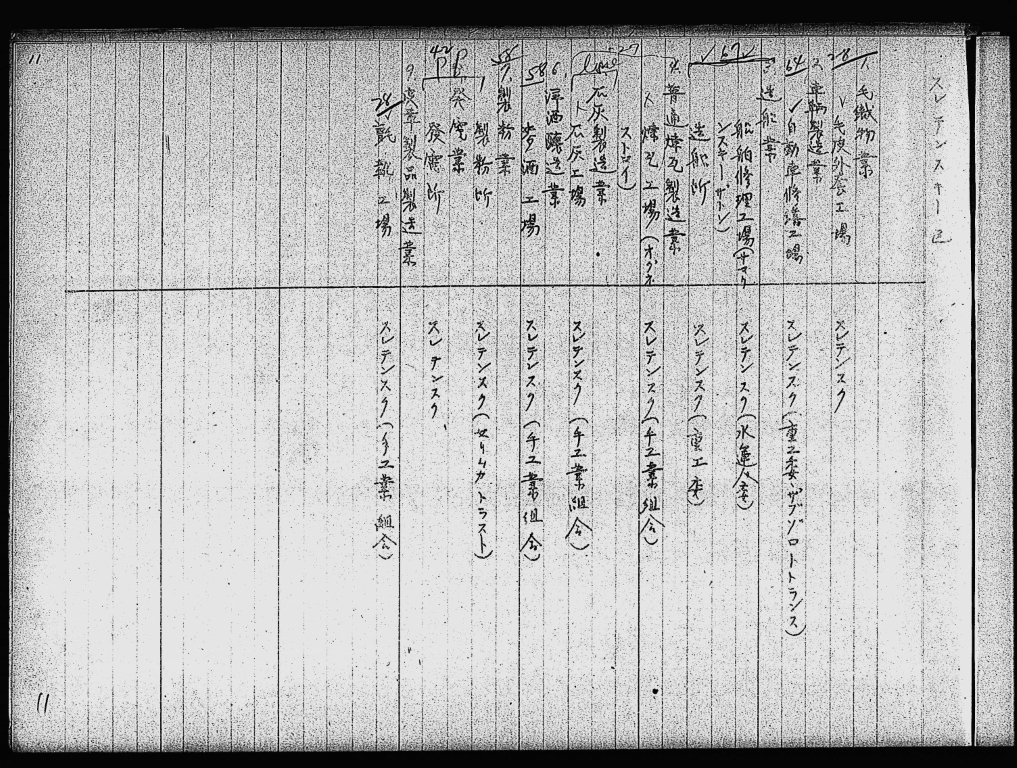 スレテンスキー区
28
1. 毛織物業
毛皮外套工場
スレテンスク
2. 車輌製造業
64
自動車修繕工場
スレテンスク(重工委、ザブゾロトトランス)
67
3. 造船業
船舶修理工場(サマク
スレテンスク(水運人委)
ンスキーザトン)
造船所
スレテンスク(重工委)
27
4. 普通煉瓦製造業
煉瓦工場(オグネ
スレテンスク(手工業組合)
ストロイ)
lime
石灰製造業
石灰工場
スレテンスク(手工業組合)
6. 洋酒醸造業
58
麥酒工場
スレテンスク(手工業組合)
58
7. 製粉業
製粉所
スレテンスク(セリムカトラスト)
42
P.P.
8. 発電業
發電所
スレテンスク
9. 皮革製品製造業
28
氈靴工場
スレテンスク(手工業組合)
11
11